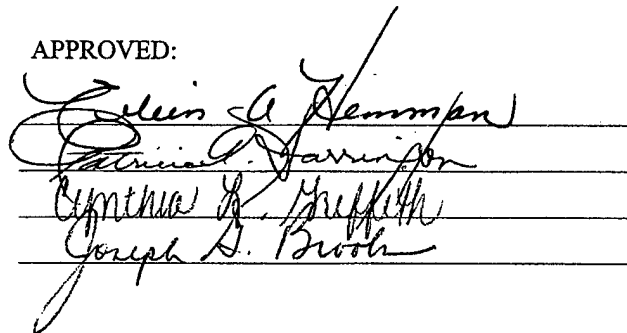 APPROVED:
Eileen A Hemman
Patricia A. Harrington
Cynthia L. Griffith
Joseph G. Brooks